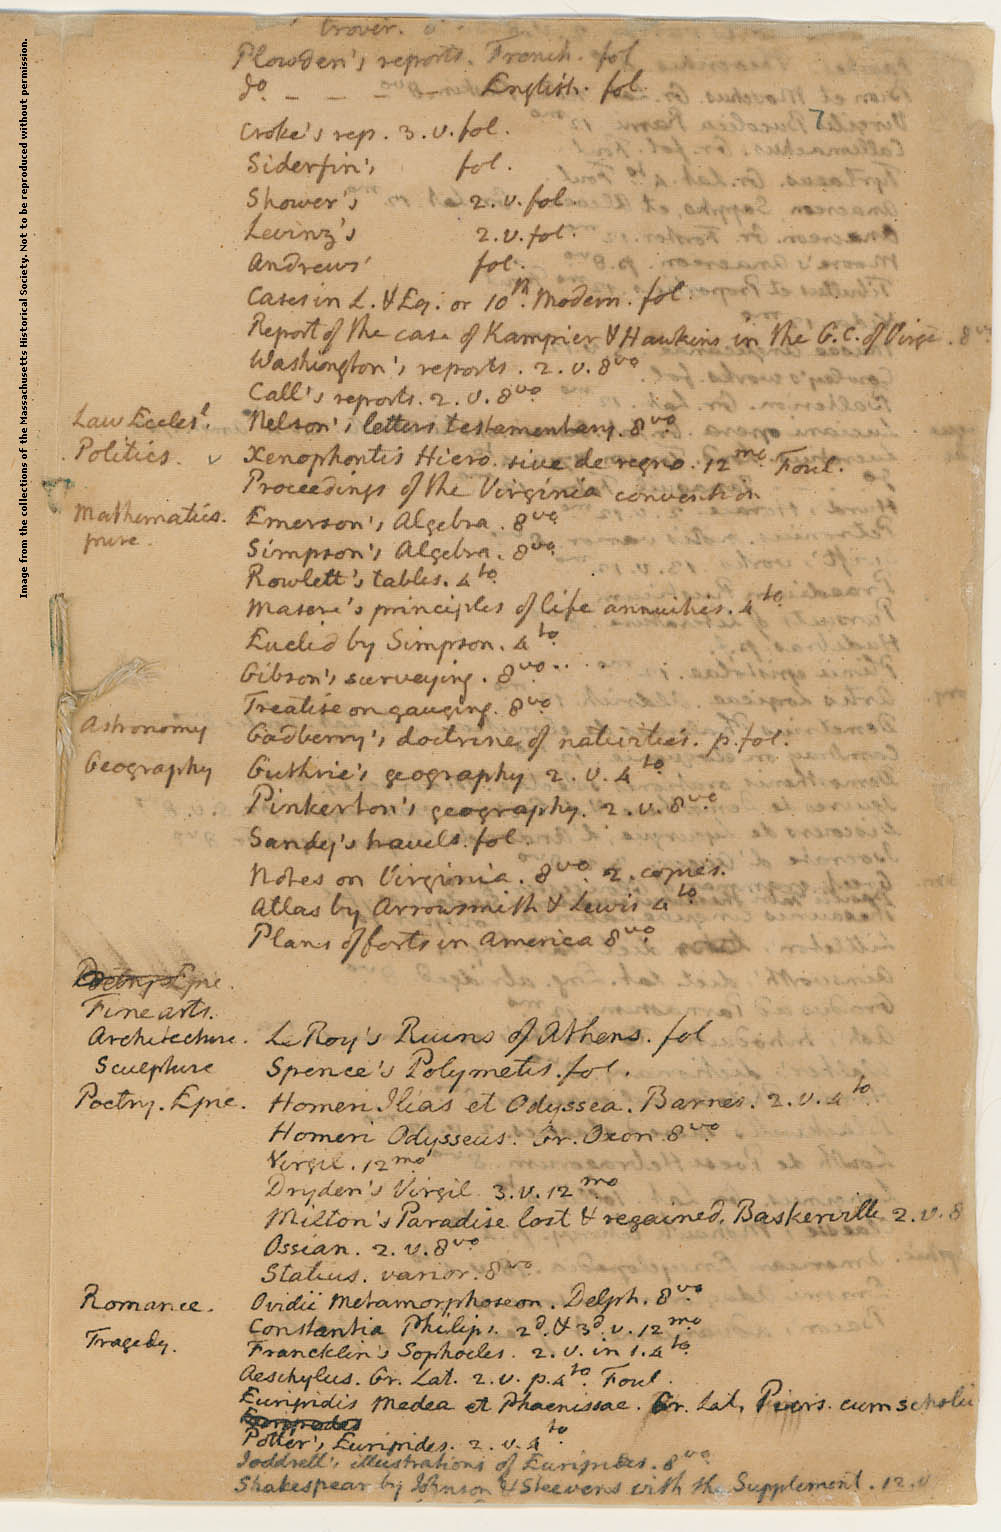 Image from the collections of the Massachusetts Historical Society. Not to be reproduced without permission.
trover.
7
Plowden's reports. French. fol
do. - - - - English. fol.
Croke's rep. 3. v. fol.
Siderfin's fol.
Shower's 2. v. fol.
Levinz's 2. v. fol.
Andrews' fol.
Cases in L. & Eq. or 10th. Modern. fol.
Report of the case of Kampier & Hawkins in the G.C. of Virge. 8vo
Washington's reports. 2. v. 8vo
Call's reports. 2. v. 8vo
Law Ecclest. Nelson's letters testamentary. 8vo
Politics. v Xenophontis Hiero. sive de regno. 12mo. Foul.
Proceedings of the Virginia convention
Mathematics. Emerson's Algebra. 8vo
pure. Simpson's Algebra. 8vo
Rowlett's tables. 4to
Masere's principles of life annuities. 4to
Euclid by Simpson. 4to
Gibson's surveying. 8vo
Treatise on gauging. 8vo
Astronomy Gadberry's doctrine of nativities. p. fol.
Geography Guthrie's geography 2. v. 4to
Pinkerton's geography. 2. v. 8vo
Sandy's travels. fol
Notes on Virginia. 8vo. 2. copies.
Atlas by Arrowsmith & Lewis 4to
Plans of forts in America 8vo
Poetry Epic.
Fine arts.
Architecture. Le Roy's Ruins of Athens. fol
Sculpture Spence's Polymetis. fol.
Poetry. Epic. Homeri Ilias et Odyssea. Barnes. 2. v. 4to
Homeri Odysseus. Gr. Oxon 8vo
Virgil. 12mo
Dryden's Virgil 3. v. 12mo
Milton's Paradise lost & regained. Baskerville 2. v. 8
Ossian. 2. v. 8vo
Statius. varior. 8vo
Romance. Ovidii Metamorphoseon. Delph. 8vo
Constantia Philips. 2d. & 3d. v. 12mo
Tragedy. Francklin's Sophocles. 2. v. in 1. 4to
Aeschylus. Gr. Lat. 2. v. p. 4to. Foul.
Euripidis Medea et Phaenissae. Gr. Lat. Piers. cum scholii
Potter's Euripides. 2. v. 4to
Joddrell's illustrations of Euripides. 8vo
Shakespear by Johnson & Steevens with the Supplement. 12. v